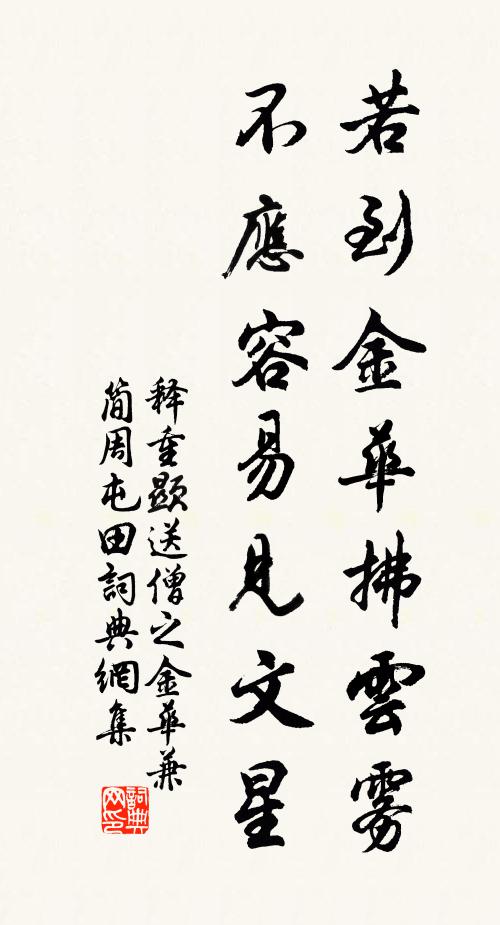 若到金華拂雲霧
不應容易見文星
释重顯送僧之金華兼
简周屯田詞典網集
詞典网印